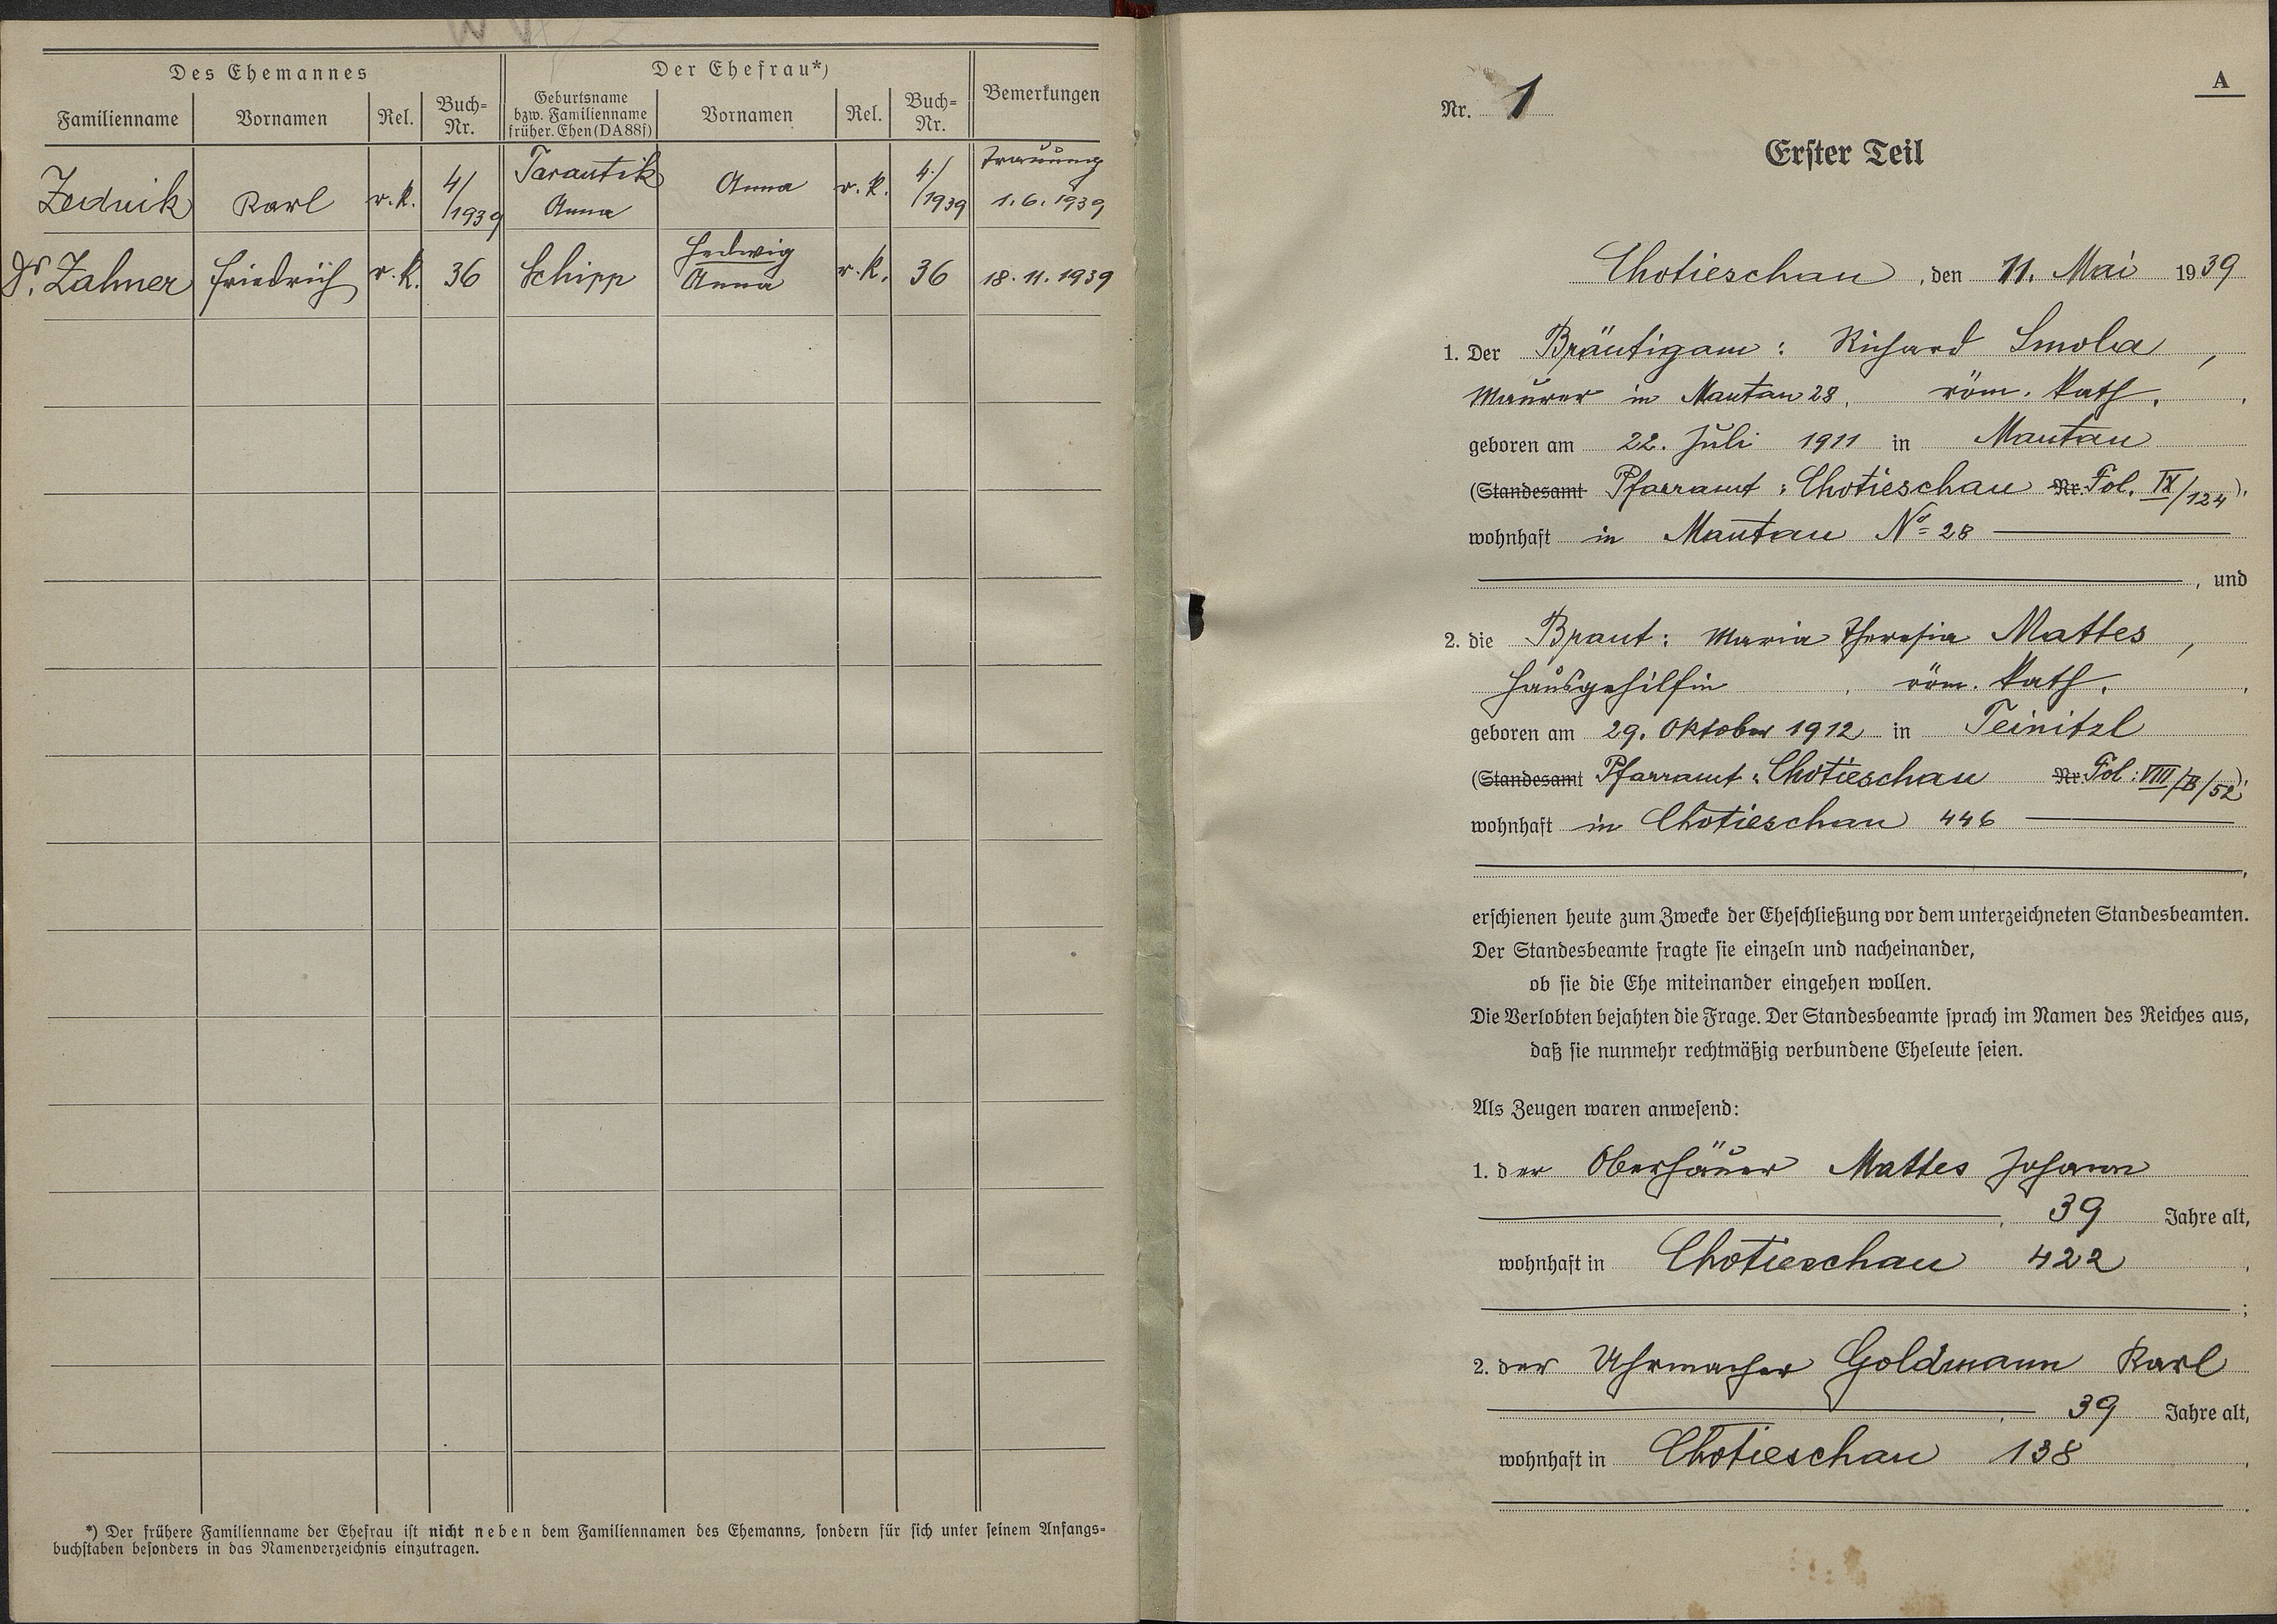 Des Ehemannes
Der Ehefrau*)
Bemerkungen
Familienname Vornamen Rel. Buch-Nr. Geburtsname bzw. Familienname früher. Ehen (DA 88f) Vornamen Rel. Buch-Nr.
Zednik Karl r. k. 4/1939 Tarantik Anna Anna r. k. 4/1939 Trauung 1. 6. 1939
Dr. Zahner Friedrich r. k. 36 Schipp Hedwig Anna r. k. 36 18. 11. 1939
*) Der frühere Familienname der Ehefrau ist nicht neben dem Familiennamen des Ehemanns, sondern für sich unter seinem Anfangs-
buchstaben besonders in das Namenverzeichnis einzutragen.
A
Nr. 1
Erster Teil
Chotieschau, den 11. Mai 1939
1. Der Bräutigam: Richard Smola,
Maurer in Mantau 28, röm. kath.,
geboren am 22. Juli 1911 in Mantau
(Standesamt Pfarramt: Chotieschau Nr. Fol. IX/124),
wohnhaft in Mantau No 28
, und
2. die Braut: Maria Theresia Mattes,
Hausgehilfin, röm. kath.,
geboren am 29. Oktober 1912 in Teinitzl
(Standesamt Pfarramt: Chotieschau Nr. Fol: VIII/B/52),
wohnhaft in Chotieschau 446
erschienen heute zum Zwecke der Eheschließung vor dem unterzeichneten Standesbeamten.
Der Standesbeamte fragte sie einzeln und nacheinander,
ob sie die Ehe miteinander eingehen wollen.
Die Verlobten bejahten die Frage. Der Standesbeamte sprach im Namen des Reiches aus,
daß sie nunmehr rechtmäßig verbundene Eheleute seien.
Als Zeugen waren anwesend:
1. der Oberhäuer Mattes Johann
, 39 Jahre alt,
wohnhaft in Chotieschau 422,
;
2. der Uhrmacher Goldmann Karl
, 39 Jahre alt,
wohnhaft in Chotieschau 138,
.